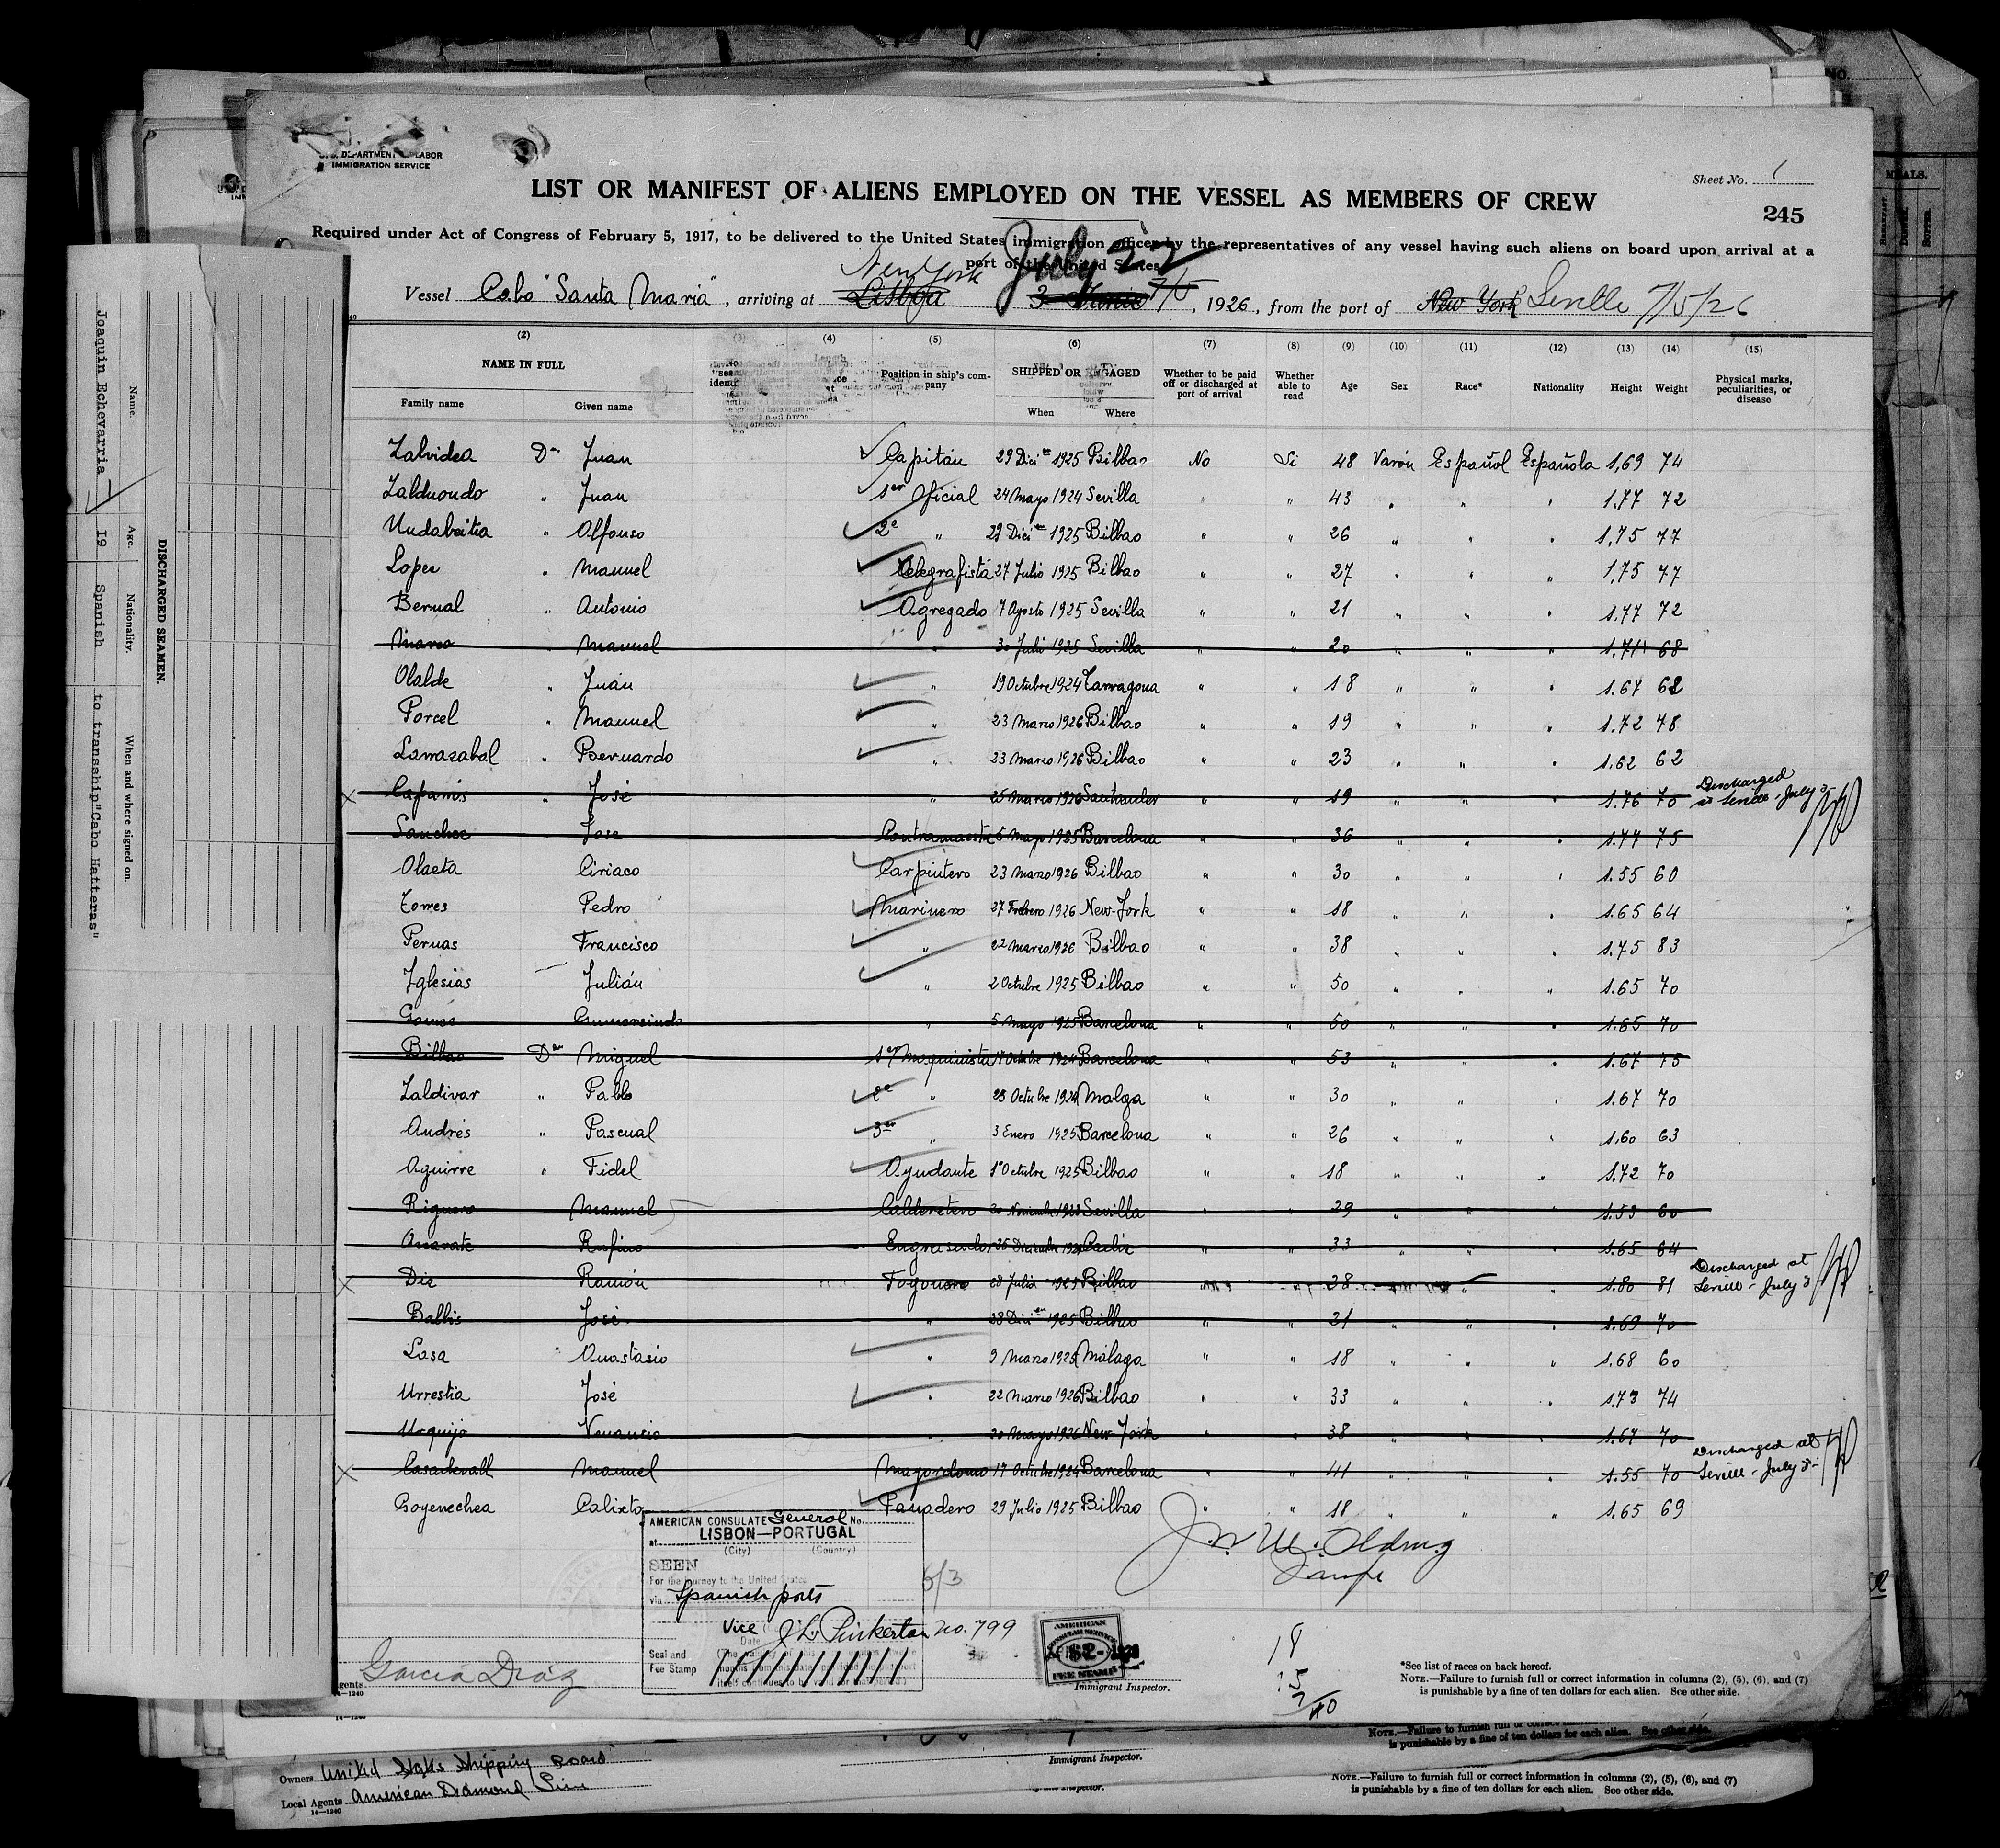 U.S. DEPARTMENT OF LABOR
IMMIGRATION SERVICE
Sheet No. 1
LIST OR MANIFEST OF ALIENS EMPLOYED ON THE VESSEL AS MEMBERS OF CREW
245
Required under Act of Congress of February 5, 1917, to be delivered to the United States immigration officer by the representatives of any vessel having such aliens on board upon arrival at a
port of the United States
July 22
New York
Vessel Cabo "Santa Maria", arriving at Lisboa 3 Junio 7/5, 1926, from the port of New York Seville 7/5/26
(2) (3) (4) (5) (6) (7) (8) (9) (10) (11) (12) (13) (14) (15)
NAME IN FULL Position in ship's company SHIPPED OR ENGAGED Whether to be paid off or discharged at port of arrival Whether able to read Age Sex Race* Nationality Height Weight Physical marks, peculiarities, or disease
Family name Given name When Where
Zalvidea Dn. Juan Capitán 29 Dici e 1925 Bilbao No Si 48 Varón Español Española 1,69 74
Zalduondo " Juan 1er Oficial 24 Mayo 1924 Sevilla " " 43 " " " 1.77 72
Undabeitia " Alfonso 2º " 29 Dici e 1925 Bilbao " " 26 " " " 1,75 77
Lopez " Manuel Telegrafista 27 Julio 1925 Bilbao " " 27 " " " 1,75 77
Bernal " Antonio Agregado 7 Agosto 1925 Sevilla " " 21 " " " 1.77 72
Manuel " 30 Julio 1925 Sevilla " " 20 " " " 1.71 68
Olalde " Juán " 19 Octubre 1924 Tarragona " " 18 " " " 1.67 62
Porcel " Manuel " 23 Marzo 1926 Bilbao " " 19 " " " 1.72 78
Larrazabal " Bernardo " 23 Marzo 1926 Bilbao " " 23 " " " 1.62 62
José " 25 Marzo 1926 Santander " " 19 " " " 1.76 70 Discharged at Seville - July 3
Sanchez Jose Contramaestre 5 Mayo 1925 Barcelona " " 36 " " " 1.77 75
Olaeta Ciriaco Carpintero 23 Marzo 1926 Bilbao " " 30 " " " 1.55 60
Torres Pedro Marinero 27 Febrero 1926 New-York " " 18 " " " 1.65 64
Pernas Francisco " 22 Marzo 1926 Bilbao " " 38 " " " 1.75 83
Yglesias Julián " 2 Octubre 1925 Bilbao " " 50 " " " 1.65 70
Gomez Gumersindo " 5 Mayo 1925 Barcelona " " 50 " " " 1.65 70
Bilbao Dn Miguel 1er Maquinista 17 Octubre 1924 Barcelona " " 53 " " " 1.67 75
Zaldivar " Pablo 2º " 25 Octubre 1924 Malaga " " 30 " " " 1.67 70
Andrés " Pascual 3er " 3 Enero 1925 Barcelona " " 26 " " " 1.60 63
Aguirre " Fidel Ayudante 1º Octubre 1925 Bilbao " " 18 " " " 1.72 70
Riguero Manuel Calderetero 30 Noviembre 1922 Sevilla " " 29 " " " 1.53 60
Rufino Engrasador Diciembre Cadiz " " 33 " " " 1.65 64
Diz Ramón Fogonero 28 Julio 1925 Bilbao " " 28 " " 1.80 81 Discharged at Seville - July 3
José " 28 Dici e 1925 Bilbao " " 21 " " " 1.69 70
Lasa Anastasio " 9 Marzo 1925 Málaga " " 18 " " " 1.68 60
Urrestia José " 22 Marzo 1926 Bilbao " " 33 " " " 1.73 74
Urquijo Venancio " 20 Mayo 1926 New York " " 38 " " " 1.67 70
Casadevall Manuel Mayordomo 17 Octubre 1924 Barcelona " " 41 " " " 1.55 70 Discharged at Seville - July 3
Goyenechea Calixto Panadero 29 Julio 1925 Bilbao " " 18 " " " 1.65 69
AMERICAN CONSULATE General No.
at LISBON—PORTUGAL
(City) (Country)
SEEN
For the journey to the United States
via Spanish ports
6/3
Vice J.L. Pinkerton no. 799
Date
Seal and
Fee Stamp
AMERICAN
CONSULAR SERVICE
$2
FEE STAMP
Immigrant Inspector.
Garcia Diaz
Agents
14—1240
18
15
7/40
*See list of races on back hereof.
NOTE.—Failure to furnish full or correct information in columns (2), (5), (6), and (7)
is punishable by a fine of ten dollars for each alien. See other side.
DISCHARGED SEAMEN.
Name. Age. Nationality. When and where signed on.
Joaquin Echevarria 19 Spanish to transship "Cabo Hatteras"
NOTE.—Failure to furnish full or correct information in columns (2), (5), (6), and (7)
is punishable by a fine of ten dollars for each alien. See other side.
Immigrant Inspector.
Owners United States Shipping Board
Local Agents American Diamond Line
14—1240
NOTE.—Failure to furnish full or correct information in columns (2), (5), (6), and (7)
is punishable by a fine of ten dollars for each alien. See other side.